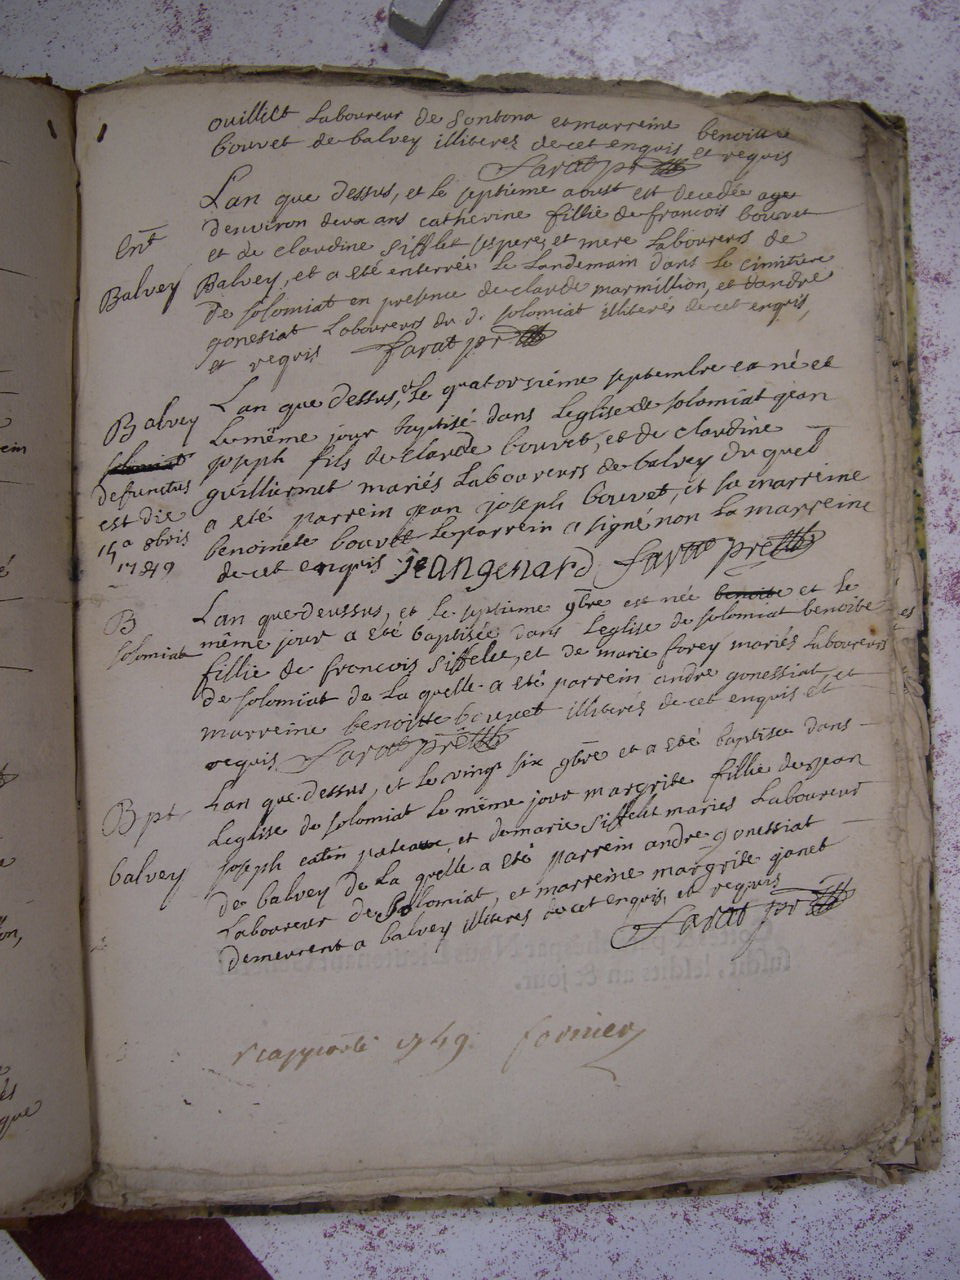 ouillet Laboureur de Sontona et marreine benoitte
bouvet de balvey illiterez de cet enquis et requis
Sarat ptr
Lan que dessus, et le septieme aoust est decedée agée
denviron deux ans catherine fillie de francois bouvet
et de claudine Sifflet ses pere, et mere Laboureurs de
Ent
Balvey
Balvey, et a eté enterrée le Landemain dans le cimitiere
de solomiat en presence de claude marmillion, et dandré
gonessiat Laboureurs du d. solomiat illiterés de cet enquis,
et requis Sarat ptr
Lan que dessus, et le quatorsiéme septembre est né et
Balvey
Le même jour baptisé dans Leglise de solomiat jean
solomiat
joseph fils de claude bouvet, et de claudine
defunctus
guilliermet mariés Laboureurs de balvey duquel
est die
a eté parrein jean joseph bouvet, et sa marreine
15a 8bris
benoinete bouvet le parrein a signé non la marreine
1749
de cet enquis jeangenard Sarat ptr
B
solomiat
Lan que deussus, et le septieme 9bre est née benoite et le
même jour a eté baptisée dans Leglise de solomiat benoite
fillie de francois Siffelet, et de marie forey mariés Laboureurs
de solomiat de La quelle a eté parrein andre gonessiat, et
marreine benoitte bouvet illiterés de cet enquis et
requis Sarat ptr
Lan que dessus, et le vingt six 9bre et a eté baptisée dans
Bpt
balvey
Leglise de solomiat le même jour margrite fillie de jean
joseph catin pateaux, et de marie Siffelet mariés Laboureurs
de balvey de La quelle a eté parrein andre gonessiat
Laboureur de solomiat, et marreine margrite janet
demeurent a balvey illiteres de cet enquis, et requis
Sarat ptr
r'apporté 1749. fornier